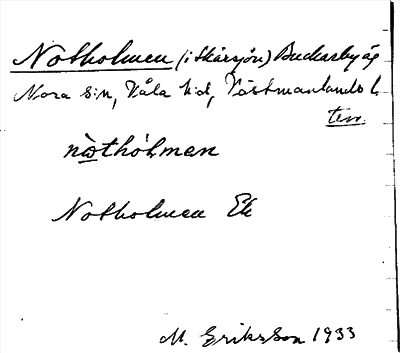 Notholmen (i Skärsjön) Buckarby äg
Nora s:n, Våla h:d, Västmanlands l.
terr.
nòthólman
Notholmen Ek
M. Eriksson 1933